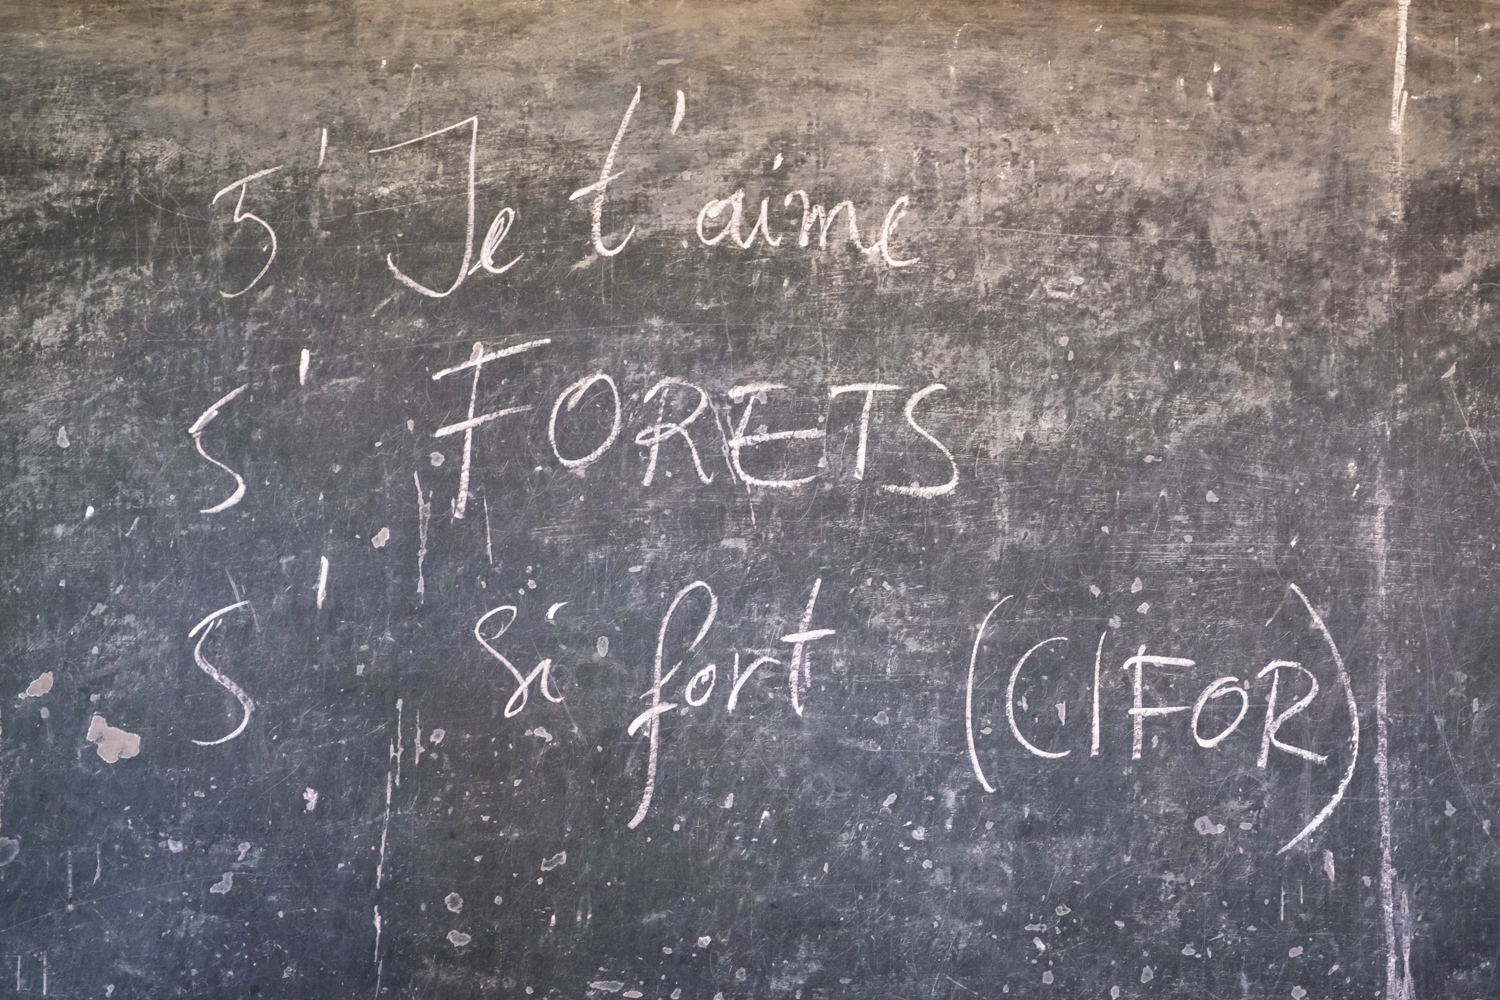 5' Je t'aime
5' FORETS
5' si fort (CIFOR)